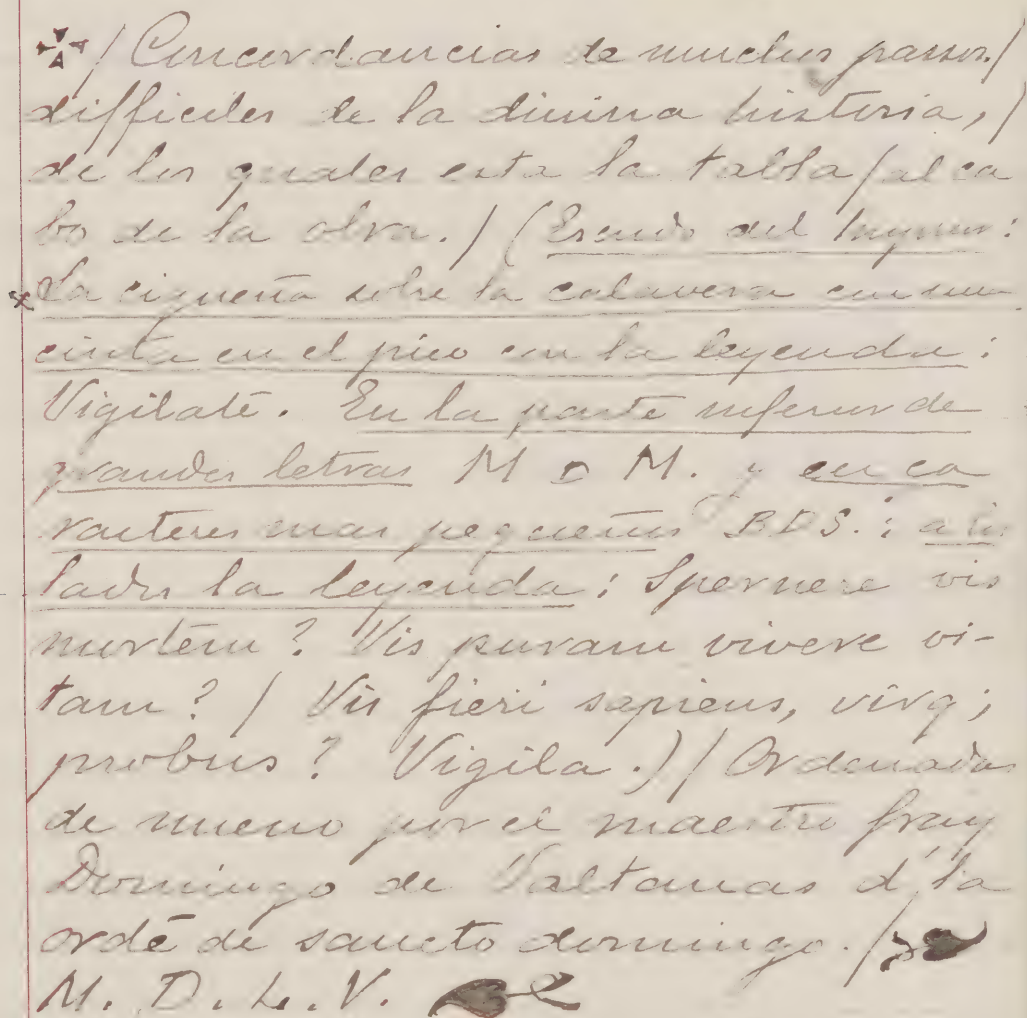 ✠ / Concordancias de muchos passos /
difficiles de la diuina historia, /
de los quales esta la tabla / al ca
bo de la obra. / (Escudo del Impresor:
La cigueña sobre la calavera con una
cinta en el pico con la leyenda:
Vigilate. En la parte inferior de
grandes letras M D M. y en ca
racteres mas pequeños BDS.: a los
lados la leyenda: Spernere vis
mortem? Vis puram vivere vi-
tam? / Vis fieri sapiens, virq;
probus? Vigila.) / Ordenadas
de nueuo por el maestro fray
Domingo de Valtanas d' la
ordē de sancto domingo. /
M. D. L. V.